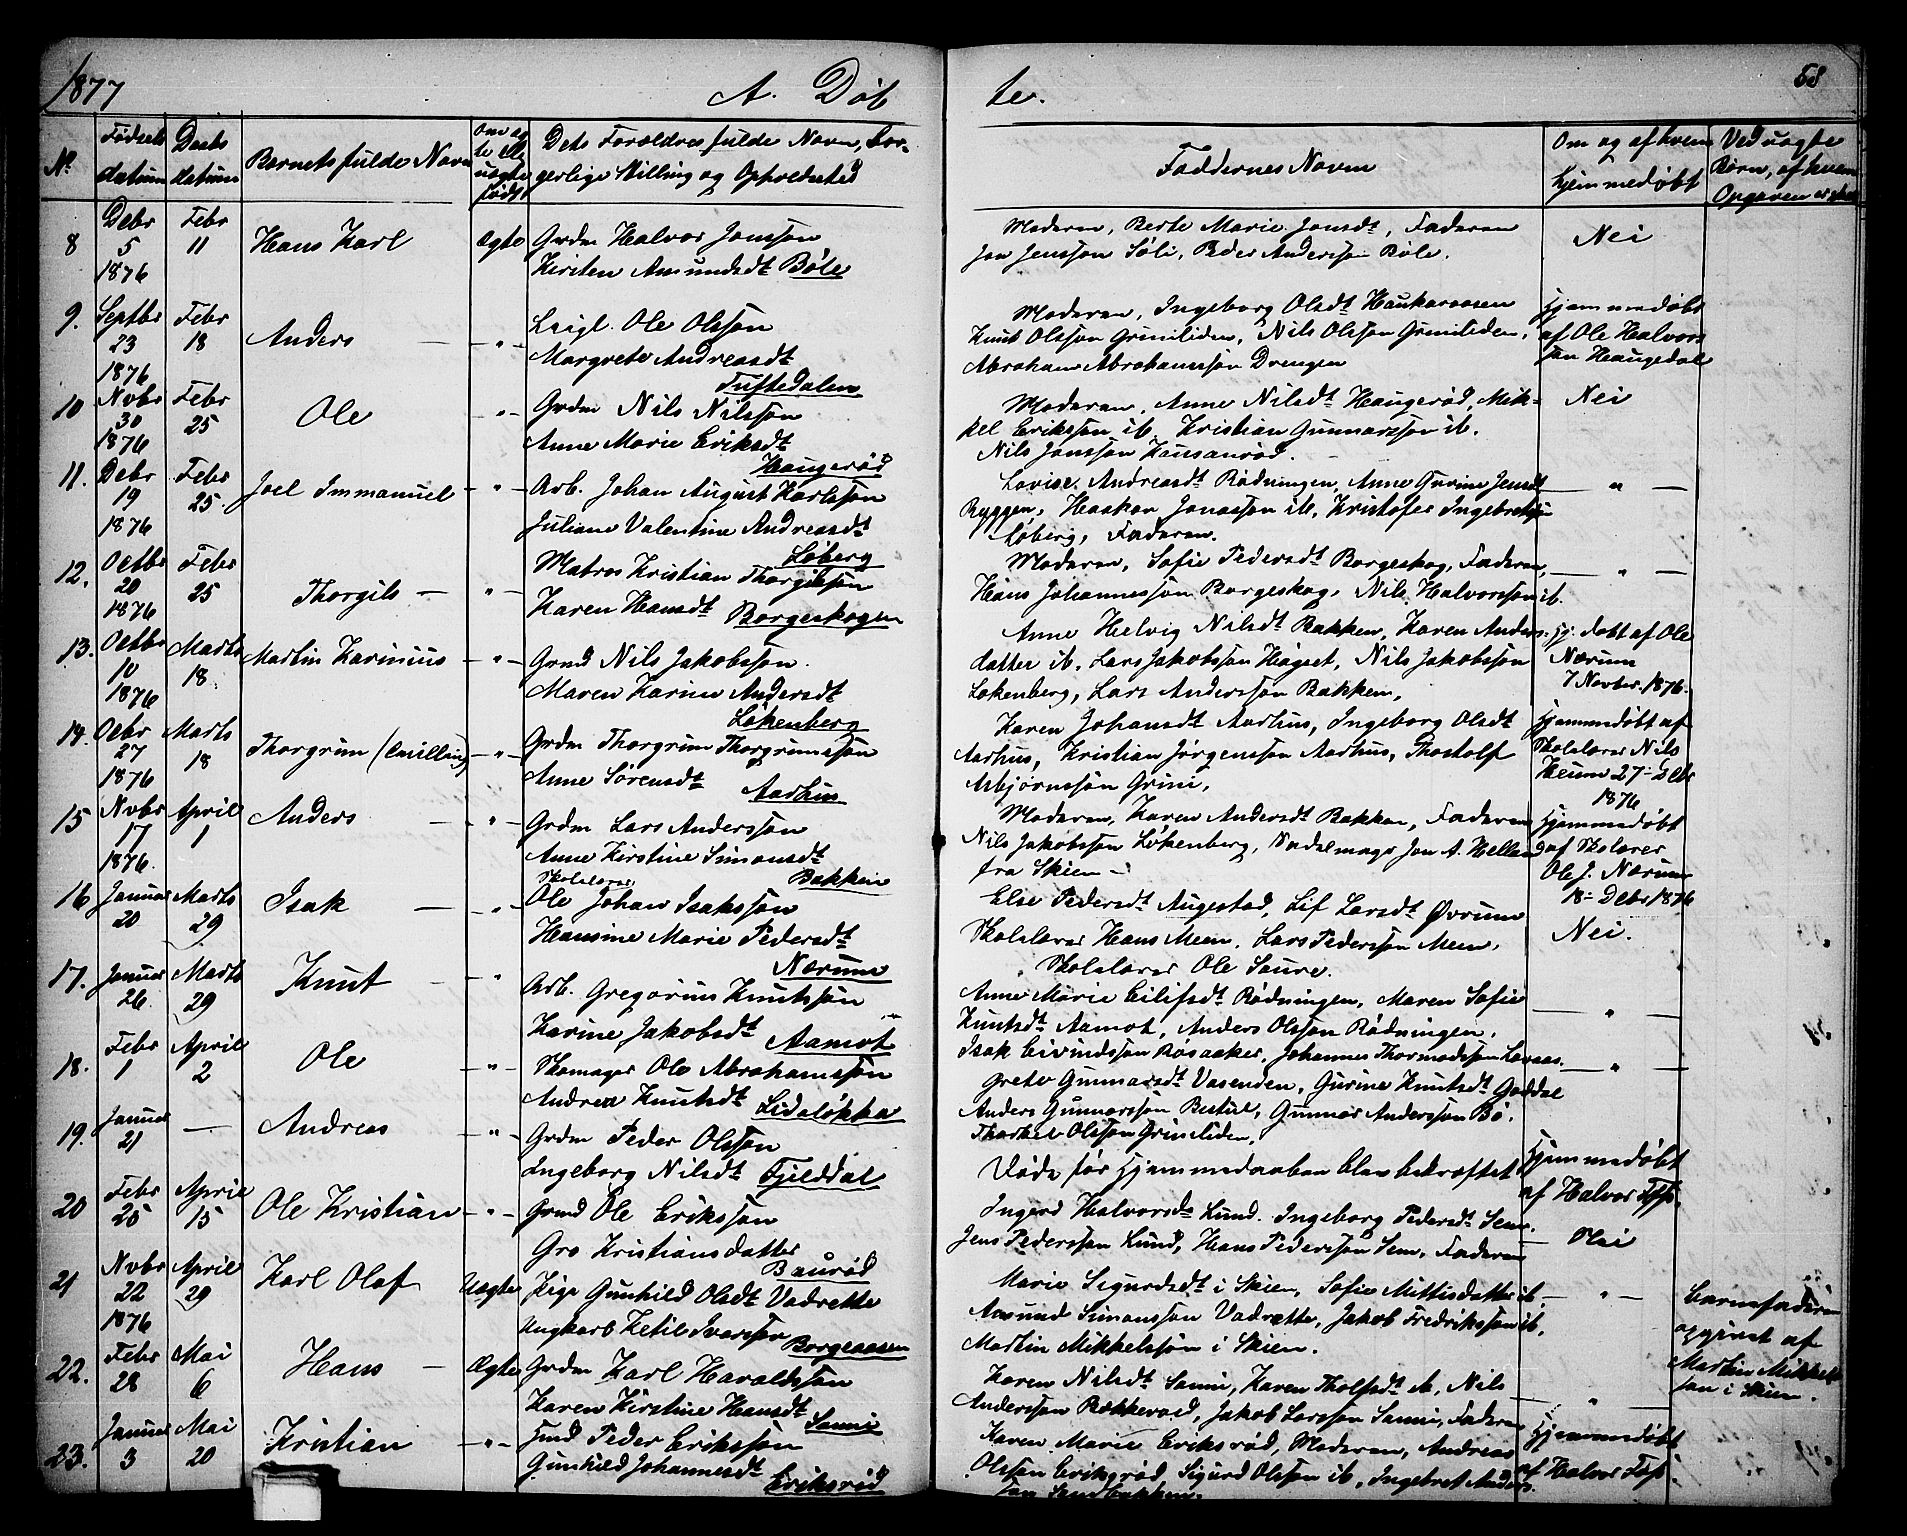 1877
A. Døb
te.
58
No.
Fødsels
datum
Daabs
datum
Barnets fulde Navn
Om æg
te el.
uægte
født
Dets Forældres fulde Navn, bor-
gerlige Stilling og Opholdssted
Faddernes Navn
Om og af hvem
hjemmedøbt
Ved uægte
Børn, af hvem
Opgaven er
8
Debr
5
1876
Febr
11
Hans Karl
Ægte
Grdm Halvor Jonsson
Kirsten Amundsdt Bøle
Moderen, Berte Marie Jonsdt, Faderen
Jon Jensson Søli, Peder Andersson Bøle.
Nei
9.
Septbr
23
1876
Febr
18
Anders —
-"-
Leigl. Ole Olsson
Margrete Andreasdt
Tuftedalen
Moderen, Ingeborg Olsdt Haukaraasen
Knut Olsson Grimliden, Nils Olsson Grimliden,
Abraham Abrahamsson Drengen
Hjemmedøbt
af Ole Halvors
søn Haugedal
10
Novbr
30
1876
Febr
25
Ole
-"-
Grdm Nils Nilsson
Anne Marie Eriksdt
Haugerød
Moderen, Anne Nilsdt Haugerød, Mik-
kel Eriksson ib. Kristian Gunnarsson ib.
Nils Jonsson Hausanrød.
Nei
11.
Debr
19
1876
Febr
25.
Joel Immanuel
-"-
Arb. Johan August Karlsson
Juliane Valentine Andreasdt
Løberg
Lovise Andreasdt Rødningen, Anne Gurine Jensdt
Ryggen, Haakon Jonasson ib, Kristofer Ingebretsson
Løberg, Faderen.
— " —
12.
Octbr
20
1876
Febr
25
Thorgils —
"-
Matros Kristian Thorgilsson
Karen Hansdt Borgeskogen
Moderen, Sofie Pedersdt Borgeskog, Faderen,
Hans Johannesson Borgeskog, Nils Halvorsson ib.
— " —
13.
Octbr
10
1876
Marts
18
Martin Karinius
-"-
Grmd Nils Jakobsson.
Maren Karine Andersdt
Løkenberg
Anne Helvig Nilsdt Bakken, Karen Anders-
datter ib, Lars Jakobsson Høgset, Nils Jakobsson
Løkenberg, Lars Andersson Bakken,
Hj. døbt af Ole
Nærum
7 Novber. 1876.
14.
Debr
27
1876
Marts
18
Thorgrim (tvilling)
-"-
Grdm Thorgrim Thorgrimsson
Anne Sørensdt
Aarhus
Karen Johansdt Aarhus, Ingeborg Olsdt
Aarhus, Kristian Jørgensson Aarhus, Thostolf
Asbjørnsson Grini,
Hjemmedøbt af
Skolelærer Nils
Heum 27– Debr
1876
15
Novbr
17
1876.
April
1
Anders —
"-
Grdm Lars Andersson
Anne Kirstine Simonsdt
Bakken
Moderen, Karen Andersdt Bakken, Faderen
Nils Jakobsson Løkenberg, Sadelmager Jon A. Helland
fra Skien –
Hjemmedøbt
af Skolelærer
Ole J. Nærum
18– Debr 1876
16
Januar
20
Marts
29
Isak —
"-
Skolelærer
Ole Johan Isaksson
Hansine Marie Pedersdt
Nærum
Else Pedersdt Augestad, Lif Larsdt Øvrum
Skolelærer Hans Meen, Lars Pedersson Meen,
Skolelærer Ole Saure.
Nei.
17.
Januar
26.
Marts
29
Knut —
"
Arb. Gregorius Knutsson
Karine Jakobsdt
Aamot
Anne Marie Eilifsdt Rødningen, Maren Sofie
Knutsdt Aamot, Anders Olsson Rødningen,
Isak Eivindsson Røsaaker, Johannes Thormodsson Løvaas.
— " —
18.
Febr
1
April
2
Ole
-"-
Skomager Ole Abrahamsson
Andrea Knutsdt Lidaløkka
Grete Gunnarsdt Vasenden, Gurine Knutsdt Gaddal
Anders Gunnarsson Bestul, Gunnar Andersson Bø.
Thorkel Olsson Grimliden.
— " —
19.
Januar
21
—
Andreas
-"-
Grdm Peder Olsson
Ingeborg Nilsdt Fjelddal
Døde før Hjemmedaaben blev bekræftet
Hjemmedøbt
af Halvor
20
Febr
25
April
15
Ole Kristian
-"-
Grmd Ole Eriksson
Gro Kristiansdatter
Baurød
Ingerd Halvorsdt Lund. Ingeborg Pedersdt Sem.
Jens Pedersson Lund, Hans Pedersson Sem, Faderen
— Nei
21
Novbr
22
1876
April
29
Karl Olaf
Uægte
Pige Gunhild Olsdt Vadrette
Ungkarl Ketil Ivarsson
Borgeaasen
Marie Sigurdsdt i Skien, Sofie Mittisdatter ib,
Aasmund Simonsson Vadrætte, Jakob Fredriksson ib.
Martin Mikkelssøn i Skien.
— " —
Barnefaderen
opgivet af
Martin Mikkel
søn i Skien.
22.
Febr
28
Mai
6
Hans —
Ægte
Grdm Karl Haraldsson
Karen Kirstine Hansdt
Sanni
Karen Nilsdt Sanni, Karen Tholfsdt ib, Nils
Andersson Bækkevad, Jakob Larsson Sanni, Faderen
— " —
23.
Januar
3
Mai
20
Kristian
-"-
Jmd Peder Eriksson
Gunhild Johannesdt
Eriksrød
Karen Marie Eriksrød, Moderen, Andreas
Olsson Eriksrød, Sigurd Olsson ib, Ingebret Anders
søn Sandbakken.
Hjemmedøbt
af Halvor